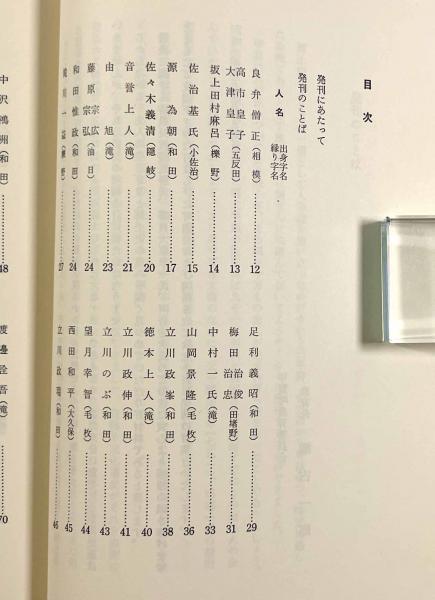 目次
発刊にあたって
発刊のことば
人名 出身字名 縁り字名
良弁僧正(相模)……12
高市皇子
大津皇子(五反田)……13
坂上田村麻呂(櫟野)……14
佐治基氏(小佐治)……15
源為朝(和田)……17
佐々木義清(隠岐)……20
音誉上人(滝)……21
由旭(滝)……23
藤原宗広
宗弘(油日)……24
和田惟政(和田)……24
滝川一益(櫟野)……27
足利義昭(和田)……29
梅田治俊
治忠(田堵野)……31
中村一氏(滝)……33
山岡景隆(毛枚)……36
立川政峯(和田)……38
徳本上人(滝)……40
立川政伸(和田)……41
立川のぶ(和田)……43
望月幸智(毛枚)……44
西田和平(大久保)……45
立川政瑞(和田)……46
中沢鴻洲(和田)……48
渡邊詮吾(滝)……70